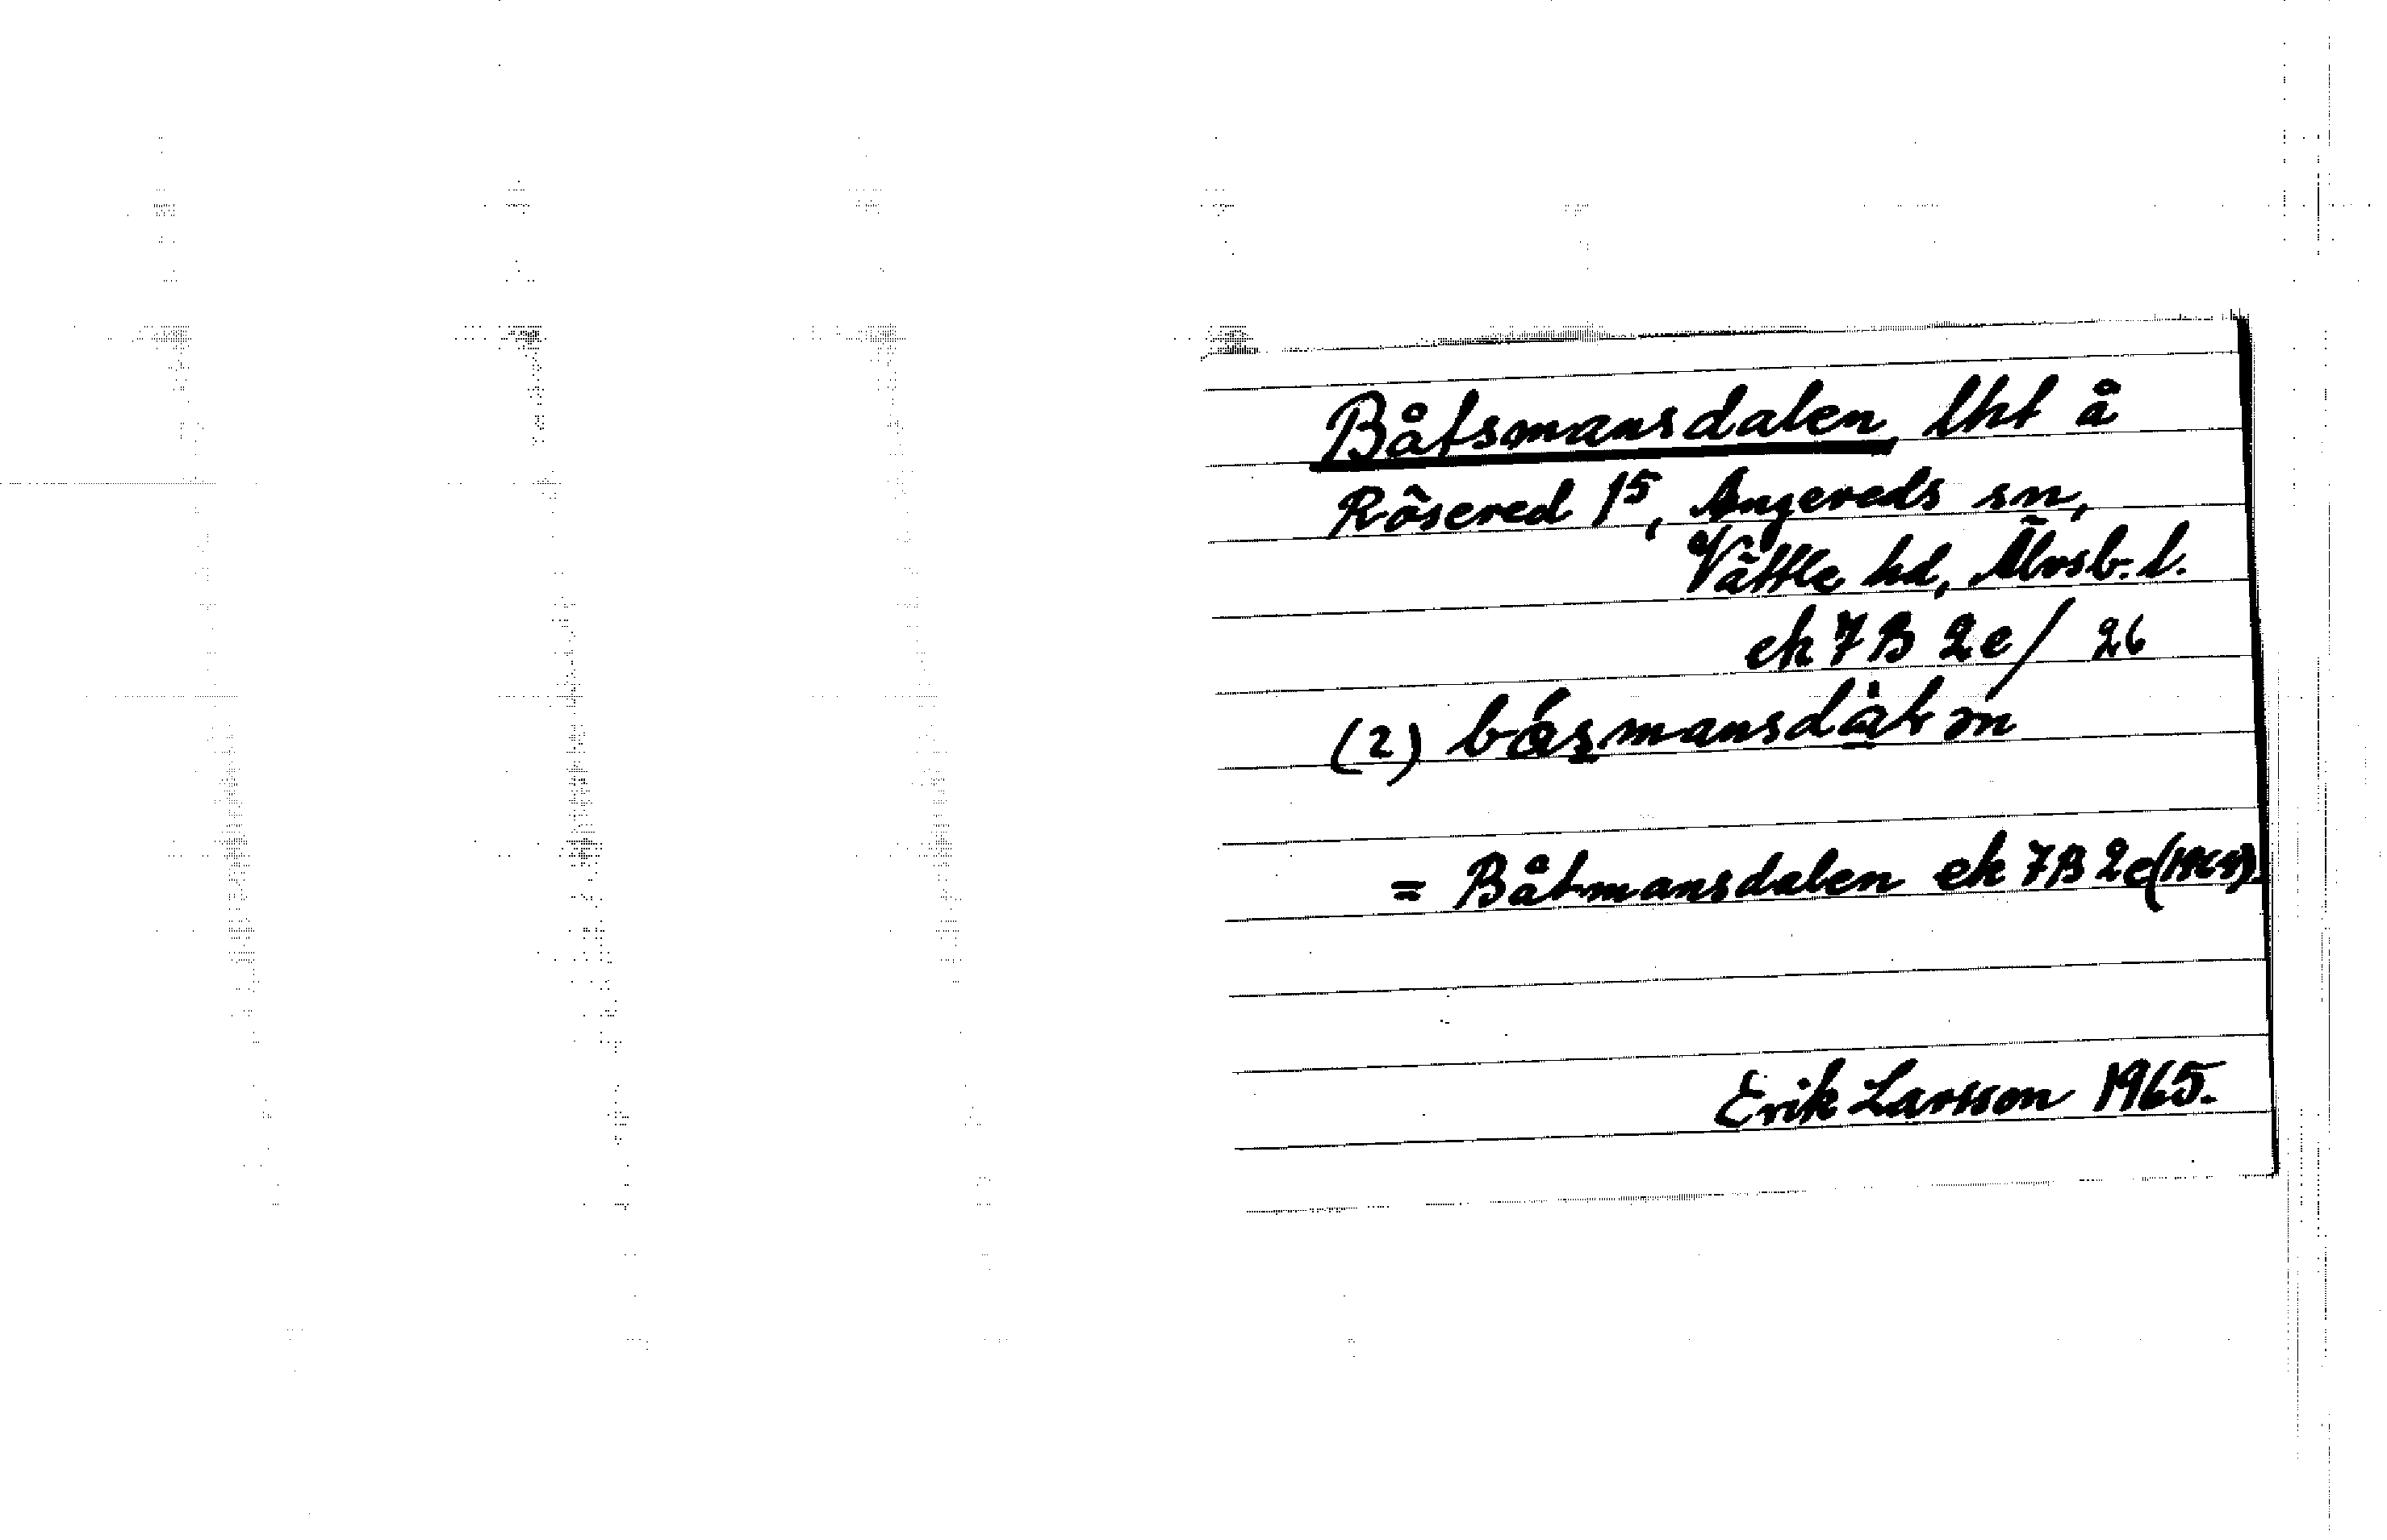 Båtsmansdalen lht å
Rösered 1⁵, Angereds sn,
Vättle hd, Älvsb. l.
ek 7B 2e / 26
(2)
= Båtmansdalen ek 7B 2e
Erik Larsson 1965.